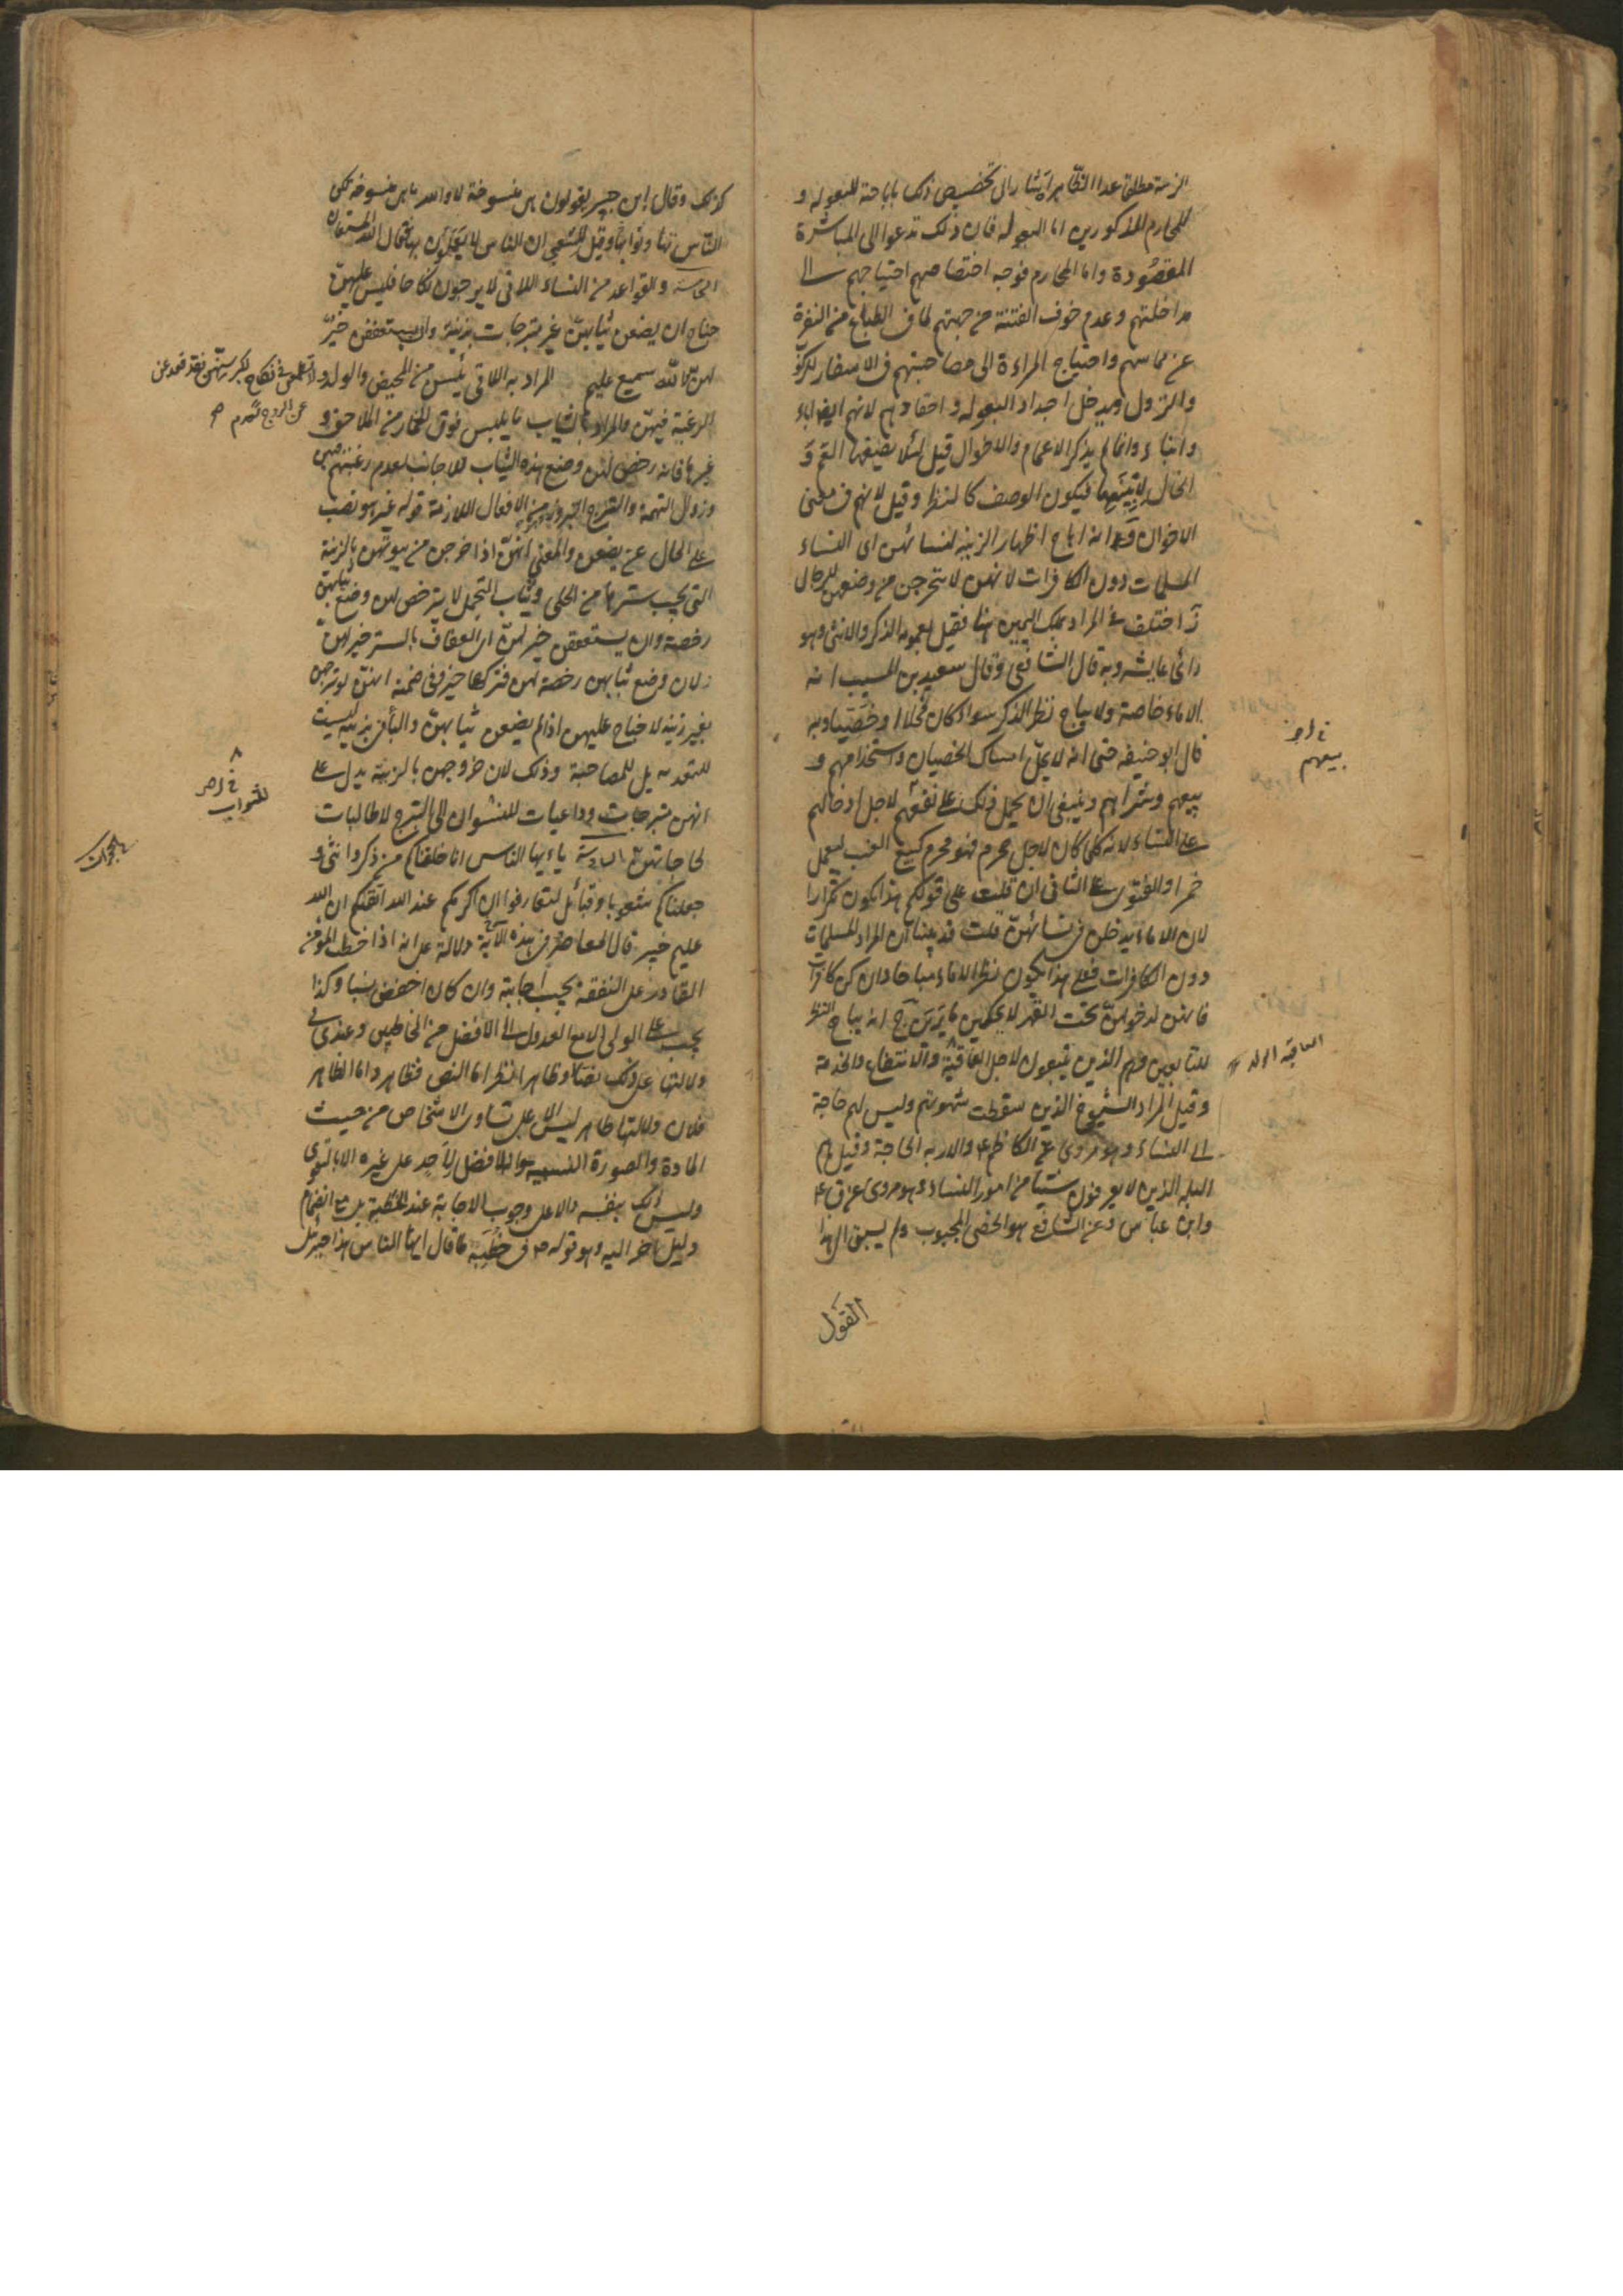 الزينة مطلقا عدا الظاهر اشار الى تخصيص ذلك باباحته للبعوله و
للمحارم المذكورين اما البعولة فان ذلك تدعوا الى المباشرة
المقصودة واما المحارم فوجه اختصاصهم احتياجهم الى
مداخلتهم وعدم خوف الفتنة من جهتهم لما في الطباع من النفرة
عن مماسهم واحتياج المراءة الى مصاحبتهم في الاسفار للركوب
والنزول ويدخل اجداد البعولة واحفادهم لانهم ايضا اباء
وابناء وانما لم يذكر الاعمام والاخوال قيل لئلا يصفها العم و
الخال لابنيهما فيكون الوصف كالنظر وقيل لانهم في معنى
الاخوان وَ انه اباح اظهار الزينة لنسائهن اى النساء
المسلمات دون الكافرات لانهن لا يتحرجن من وصفهن للرجال
زَ اختلف في المراد بملك اليمين هنا فقيل بعمومه الذكر والانثى وهو
رائ عايشه وبه قال الشافعى وقال سعيد بن المسيب انه
الاماء خاصة ولا يباح نظر الذكر سواء كان فحلا او خصيا وبه
قال ابو حنيفه حتى انه لا يحل امساك الخصيان واستخدامهم و
بيعهم وشراهم وينبغى ان يحمل ذلك على نفعهم لاجل ادخالهم
على النساء لانه كلما كان لاجل محرم فهو محرم كبيع العنب ليعمل
خمرا والفتوى على الثانى ان قلت على قولكم هذا يكون تكرارا
لان الاماء يدخلن في نسائهن قلت قد بينا ان المراد المسلمات
دون الكافرات فعلى هذا يكون نظر الاماء مباحا وان كن كافرات
فانهن لدخولهن تحت القهر لا يحكين ما يرين حَ انه يباح النظر
للتابعين وهم الذين يتبعون لاجل العاقبة والانتفاع والخدمة
وقيل المراد الشيوخ الذين سقطت شهوتهم وليس لهم حاجة
الى النساء وهو مروى عن الكاظم ع والاربه الحاجة وقيل هم
البله الذين لا يعرفون شيئا من امور النساء وهو مروى عن ق ع
وابن عباس وعن الشافعى هو الخصى المجبوب ولم يسبق الى هذا
القول
بيعهم
العاقبه الولد
كذلك وقال ابن جبير يقولون هى منسوخة لا والله ما هى منسوخه لكن
الناس تهاونوا بها وقيل للشعبي ان الناس لا يعملون بها فقال الله المستعان
الخامسة والقواعد من النساء اللاتى لا يرجون نكاحا فليس عليهن
جناح ان يضعن ثيابهن غير متبرجات بزينة وان يستعففن خير
لهن والله سميع عليم المراد به اللاتى يئسن من المحيض والولد و
الرغبة فيهن والمراد بالثياب ما يلبس فوق الخمار من الملاحف و
غيرها فانه رخص لهن وضع هذه الثياب للاجانب لعدم رغبتهم فيهن
وزوال التهمة والتبرج البروز من الافعال اللازمة قوله غير هو نصب
على الحال عن يضعن والمعنى انهن اذا خرجن من بيوتهن بالزينة
التى يجب سترها من الحلى وثياب التجمل لا يترخص لهن وضع ثيابهن
رخصة وان يستعففن خير لهن اى العفاف بالستر خير لهن
لان وضع ثيابهن رخصة لهن فتركها خير وفي ضمنه انهن لو تبرجن
بغير زينة لا جناح عليهن اذا لم يضعن ثيابهن والباء في بزينة ليست
للتعدية بل للمصاحبة وذلك لان خروجهن بالزينة يدل على
انهن متبرجات وداعيات للنسوان الى التبرج لا طالبات
لحاجاتهن السادسة ياءيها الناس انا خلقناكم من ذكر وانثى و
جعلناكم شعوبا وقبائل لتعارفوا ان اكرمكم عند الله اتقيكم ان الله
عليم خبير قال المعاصر في هذه الآية دلالة على انه اذا خطب المؤمن
القادر على النفقة يجب اجابته وان كان اخفض نسبا وكذا
يجب على الولى الامع العدول الى الافضل من الخاطبين وعندى في
دلالتها على ذلك نصا وظاهرا نظر اما النص فظاهر واما الظاهر
فلان دلالتها ظاهر ليس الا على تساوى الاشخاص من حيث
المادة والصورة النسبية وانه لا فضل لاحد على غيره الا بالتقوى
وليس ذلك بنفسه دالا على وجوب الاجابة عند الخطبة بل مع انضمام
دليل آخر اليه وهو قوله ص في خطبة ما قال ايها الناس هذا جبرئيل
لا تطمعن في نكاح لكبر سنهن فقد قعدن
عن الزوج
الحجرات